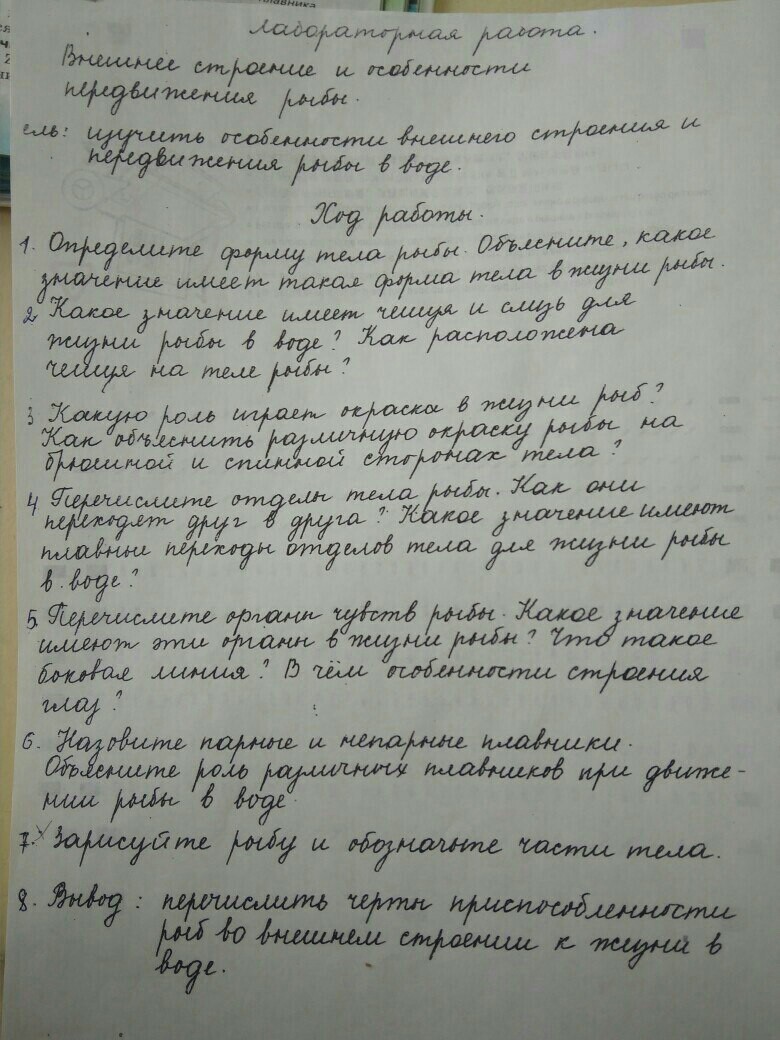 плавника
Лабораторная работа.
Внешнее строение и особенности
передвижения рыбы.
ель: изучить особенности внешнего строения и
передвижения рыбы в воде.
Ход работы.
1. Определите форму тела рыбы. Объясните, какое
значение имеет такая форма тела в жизни рыбы.
2 Какое значение имеет чешуя и слизь для
жизни рыбы в воде? Как расположена
чешуя на теле рыбы?
3 Какую роль играет окраска в жизни рыб?
Как объяснить различную окраску рыбы на
брюшной и спинной сторонах тела?
4 Перечислите отделы тела рыбы. Как они
переходят друг в друга? Какое значение имеют
плавные переходы отделов тела для жизни рыбы
в воде?
5. Перечислите органы чувств рыбы. Какое значение
имеют эти органы в жизни рыбы? Что такое
боковая линия? В чём особенности строения
глаз?
6. Назовите парные и непарные плавники.
Объясните роль различных плавников при движе-
нии рыбы в воде.
7. Зарисуйте рыбу и обозначьте части тела.
8. Вывод: перечислить черты приспособленности
рыб во внешнем строении к жизни в
воде.